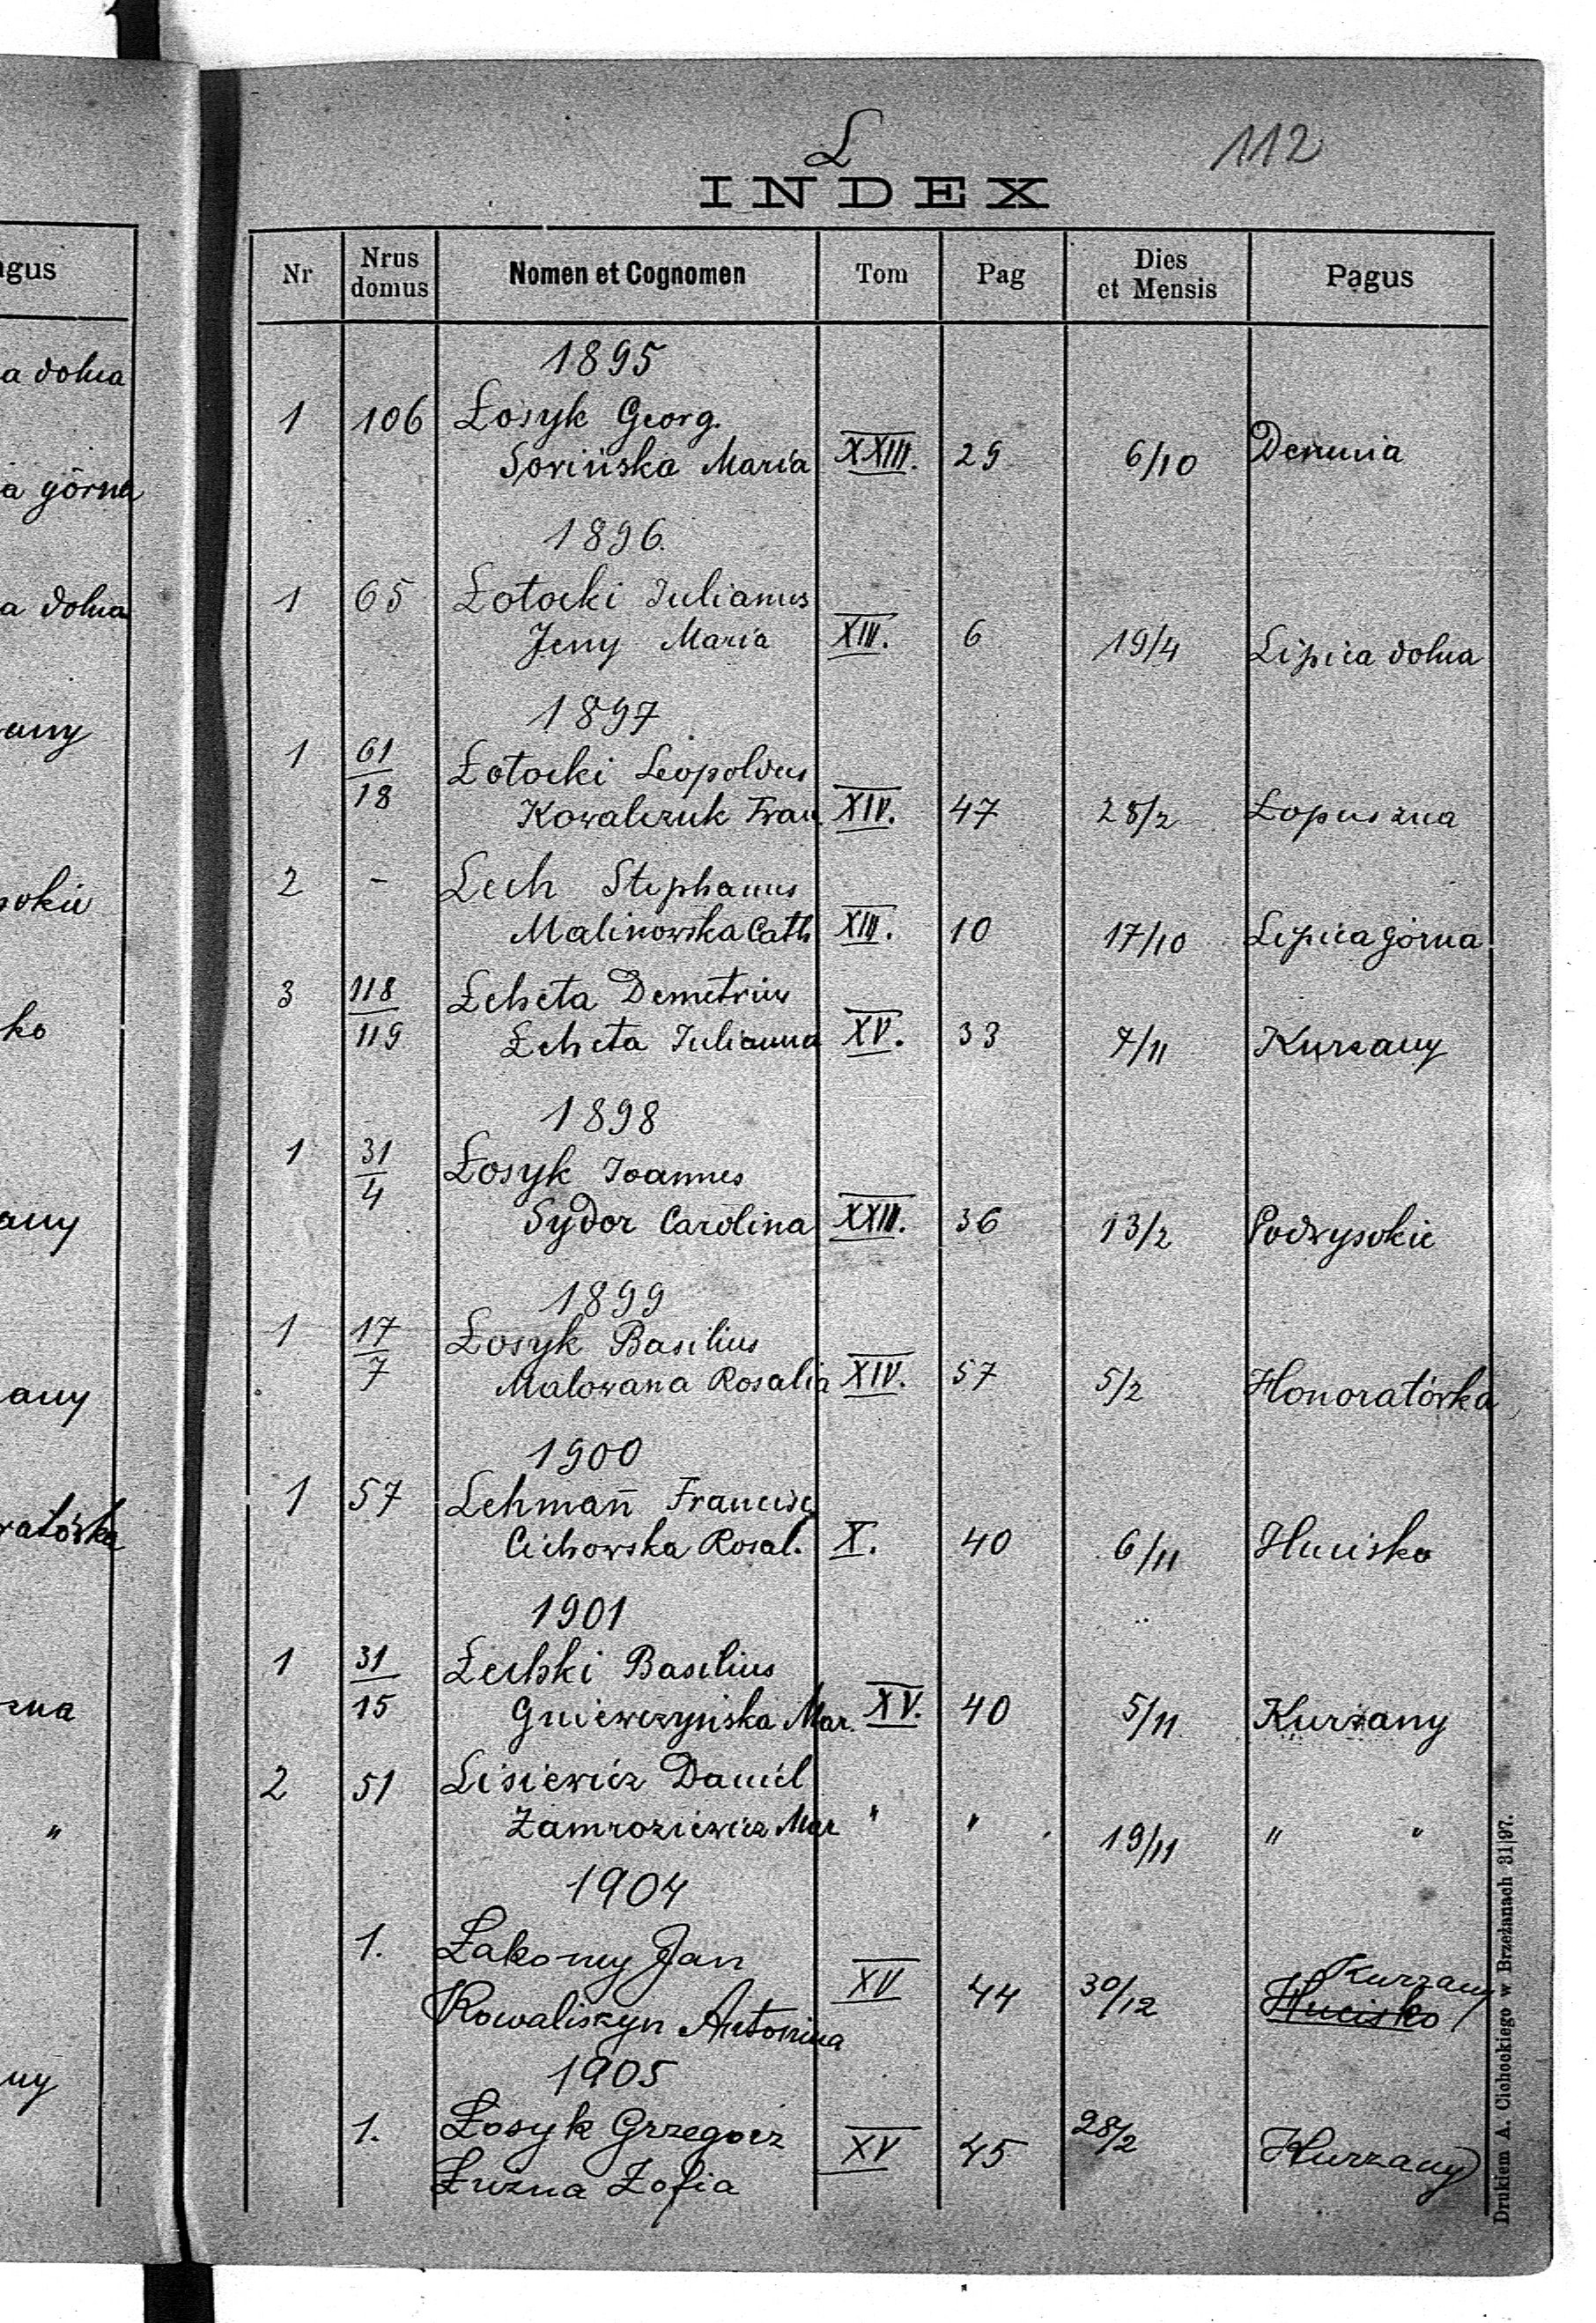 agus
a dolna
a górna
a dolna
any
sokie
ko
any
any
ratówka
zna
"
ny
L
112
INDEX
Nr Nrus domus Nomen et Cognomen Tom Pag Dies et Mensis Pagus
1895
1 106 Łosyk Georg.
Sorińska Maria XXIII. 29 6/10 Demnia
1896.
1 65 Łotocki Julianus
Jeny Maria XIV. 6 19/4 Lipica dolna
1897
1 61/18 Łotocki Leopoldus
Kowalczuk Fran XIV. 47 28/2 Łopuszna
2 - Lech Stephanus
Malinowska Cath XIII. 10 17/10 Lipica górna
3 118/119 Łeheta Demetrius
Łeheta Julianna XV. 33 7/11 Kurzany
1898
1 31/4 Łosyk Joannes
Sydor Carolina XXIII. 36 13/2 Podwysokie
1899
1 17/7 Łosyk Basilius
Malowana Rosalia XIV. 57 5/2 Honoratówka
1900
1 57 Lehman̄ Francisc
Cichowska Rosal. X. 40 6/11 Hucisko
1901
1 31/15 Łechki Basilius
Gniewczyńska Mar. XV. 40 5/11 Kurzany
2 51 Lisiewicz Daniel
Zamroziewicz Mar " " 19/11 " "
1904
1. Łakomy Jan
Kurzany
Kowaliszyn Antonina XV 44 30/12 Hucisko
1905
1. Łosyk Grzegorz
Łuzna Zofia XV 45 28/2 Kurzany
Drukiem A. Cichockiego w Brzeżanach 31|97.